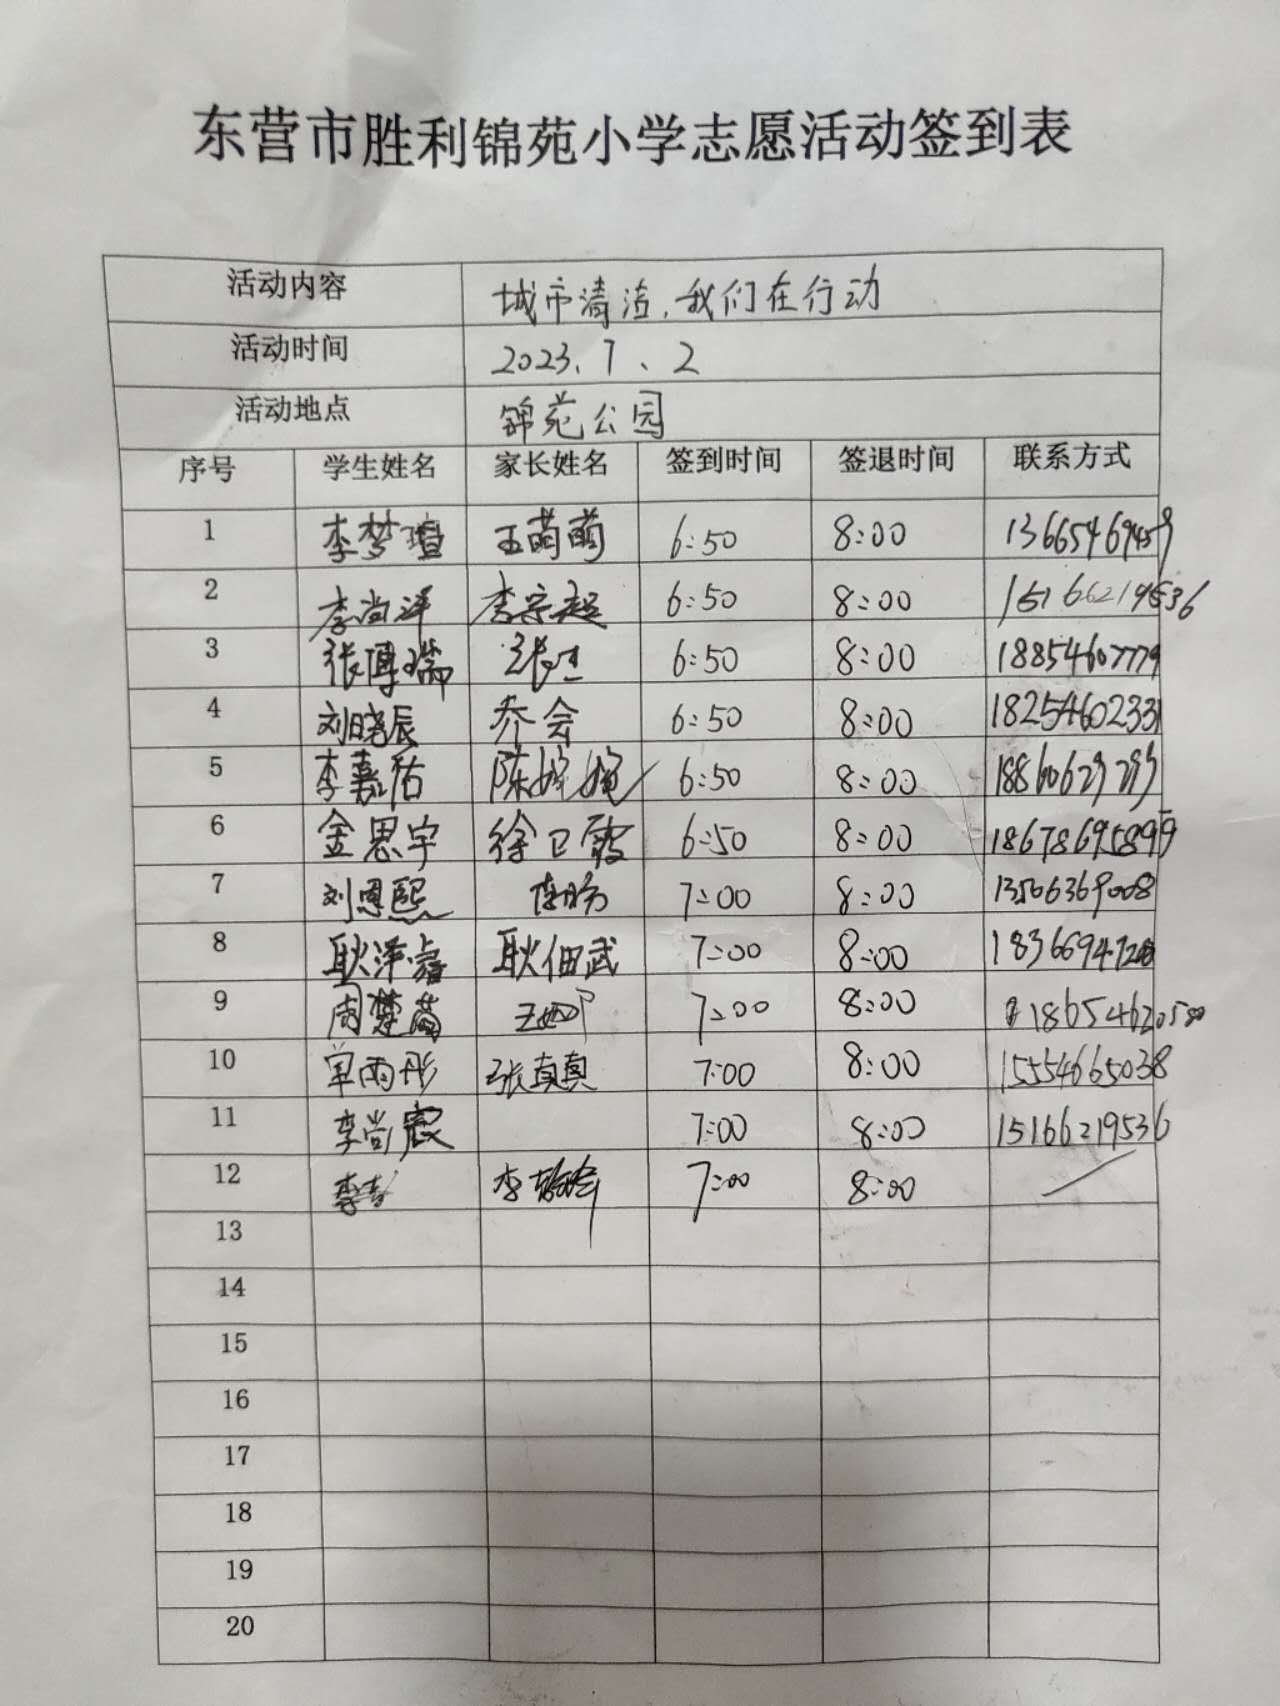 东营市胜利锦苑小学志愿活动签到表
活动内容 城市清洁,我们在行动
活动时间 2023、7、2
活动地点 锦苑公园
序号 学生姓名 家长姓名 签到时间 签退时间 联系方式
1 李梦瑄 王萌萌 6:50 8:00
2 李尚洋 李宗超 6:50 8:00 15166219536
3 张博瑞 6:50 8:00 18854607779
4 刘晓辰 乔会 6:50 8:00 18254602331
5 李嘉佑 陈婉婉 6:50 8:00
6 金思宇 徐卫霞 6:50 8:00
7 刘恩熙 7:00 8:00 13506369008
8 耿泽睿 耿佃武 7:00 8:00
9 周楚涵 7:00 8:00 18654620580
10 单雨彤 张真真 7:00 8:00 15554665038
11 李尚宸 7:00 8:00 15166219536
12 李 7:00 8:00
13
14
15
16
17
18
19
20